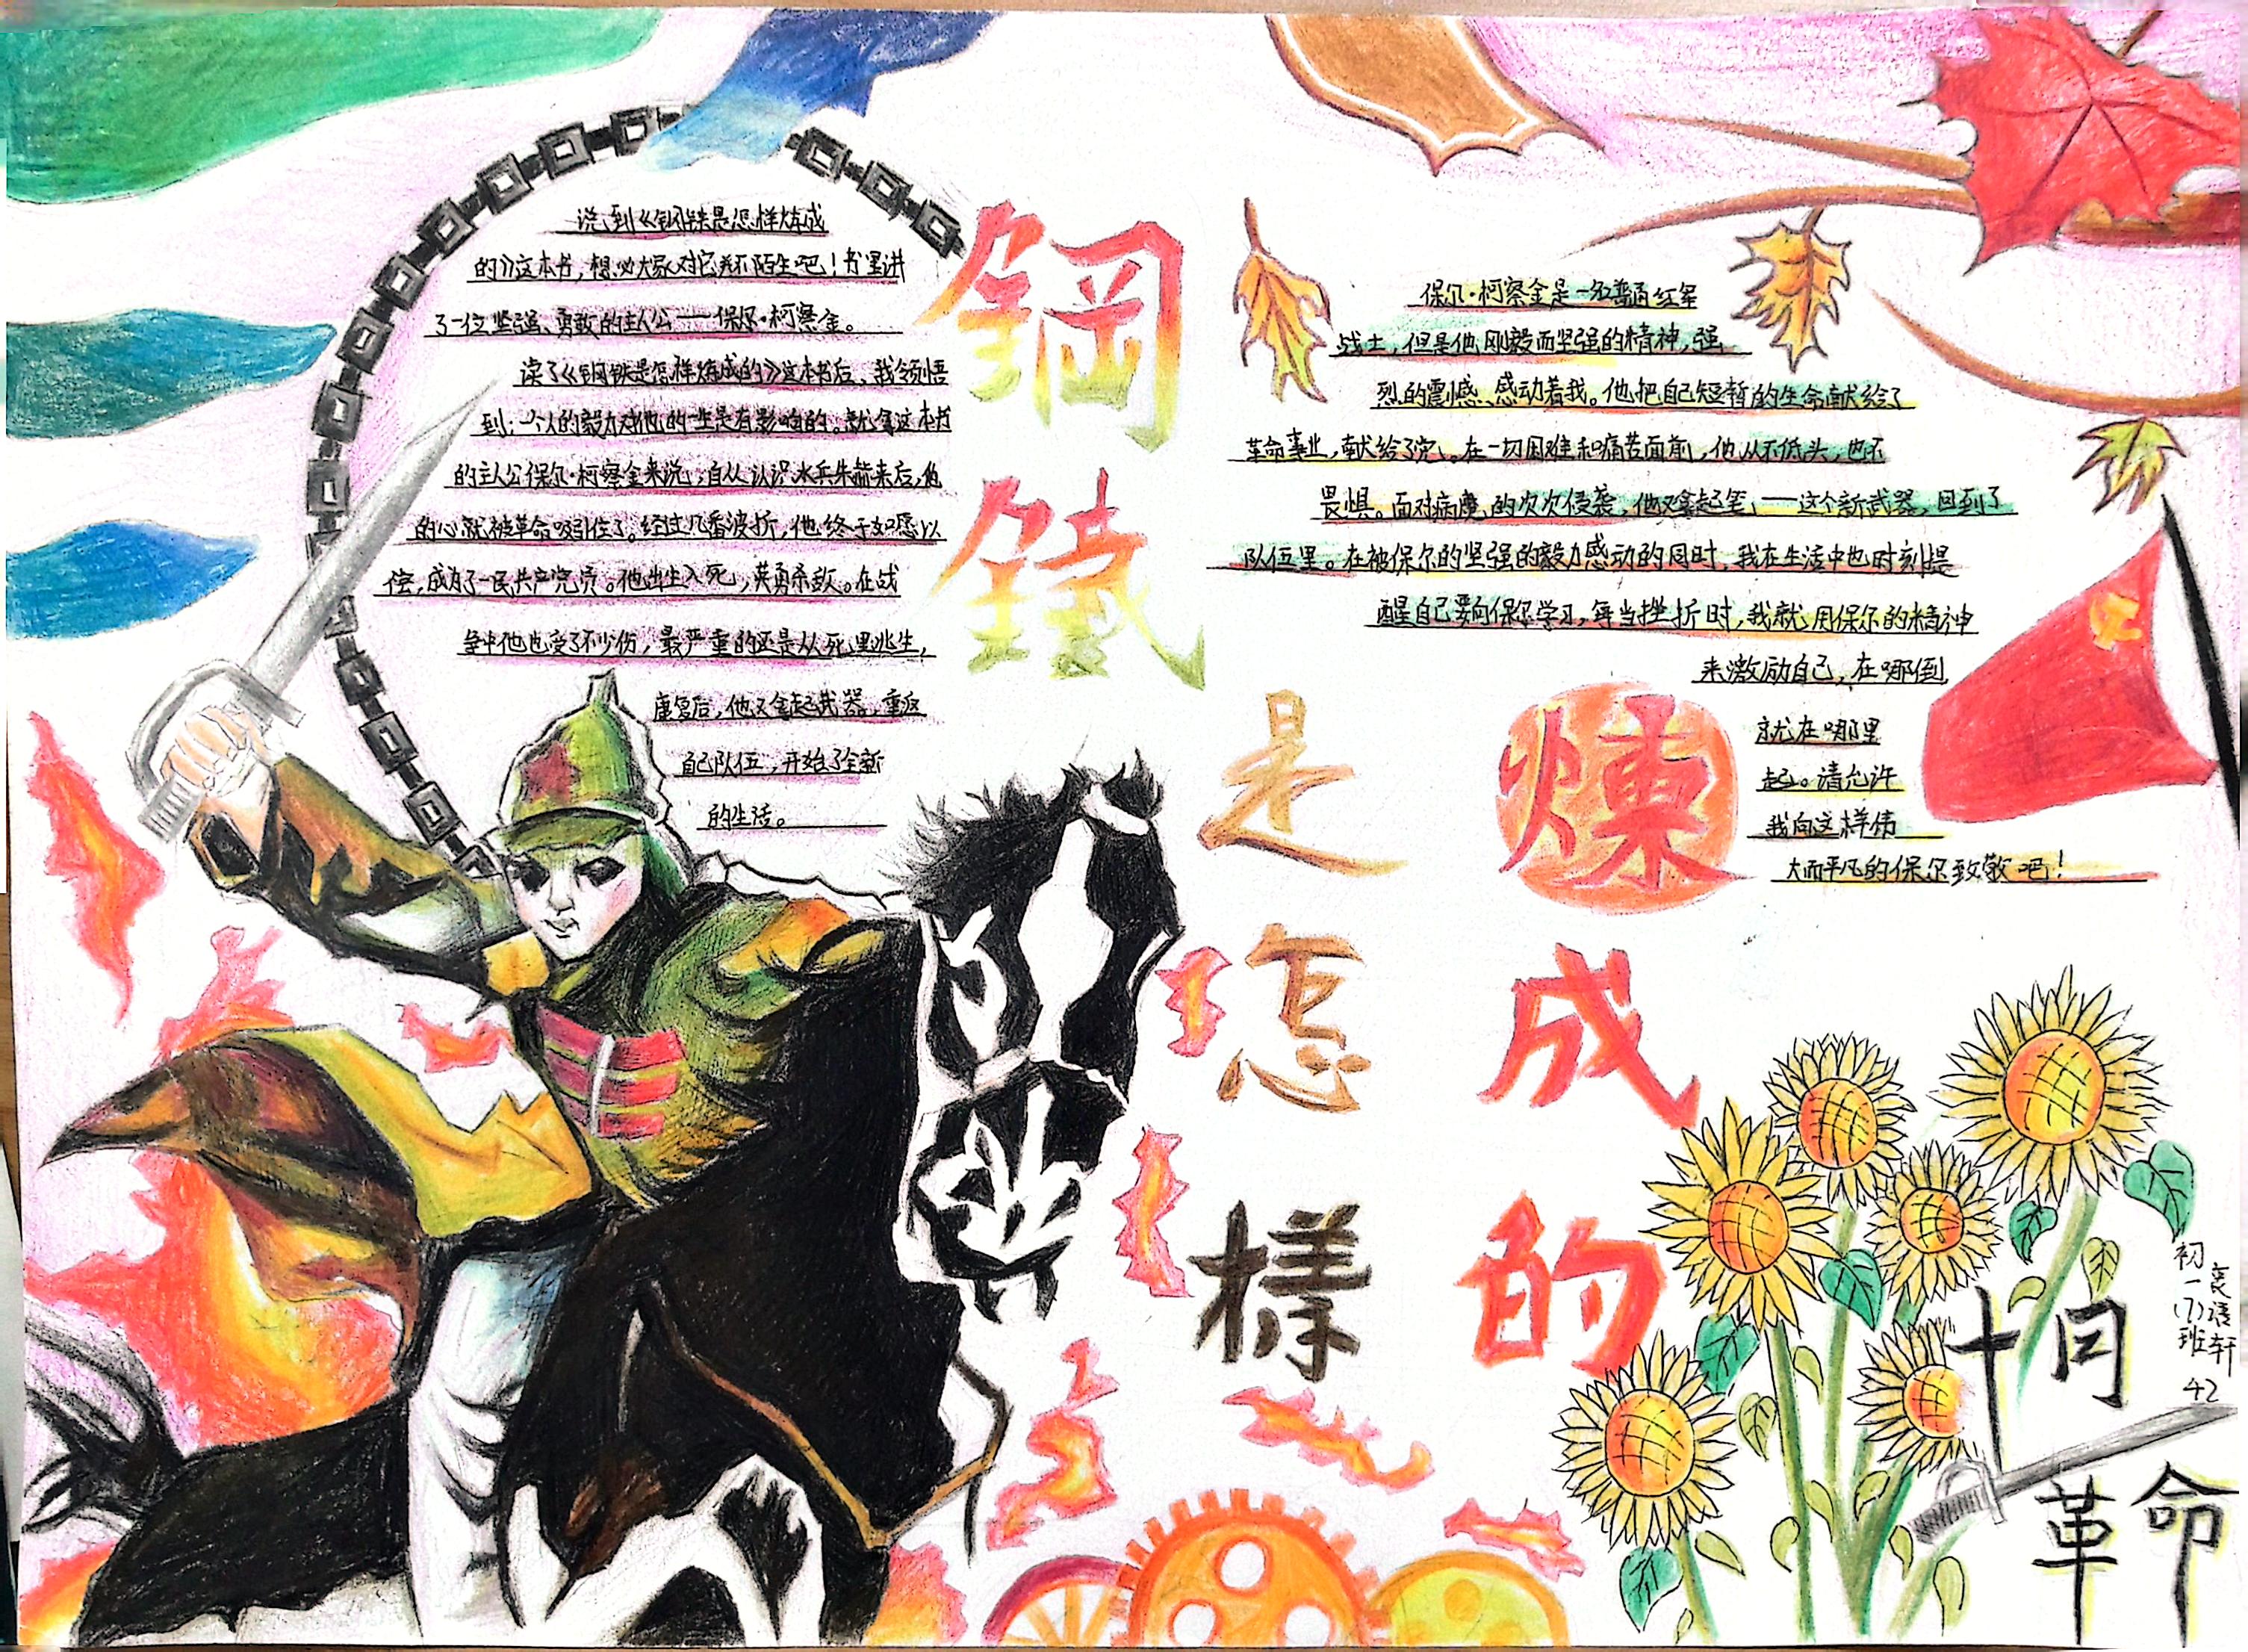 说到《钢铁是怎样炼成
的》这本书，想必大家对它并不陌生吧！书里讲
了一位坚强、勇敢的主人公——保尔·柯察金。
读了《钢铁是怎样炼成的》这本书后，我领悟
到：一个人的毅力对他的一生是有影响的。就拿这本书
的主人公保尔·柯察金来说，自从认识水兵朱赫来后，他
的心就被革命吸引住了。经过几番波折，他终于如愿以
偿，成为了一民共产党员。他出生入死，英勇杀敌。在战
争中他也受了不少伤，最严重的还是从死里逃生，
康复后，他又拿起武器，重返
自己队伍，开始了全新
的生活。
鋼
鐵
是
怎
樣
煉
成
的
保尔·柯察金是一名普通红军
战士，但是他刚毅而坚强的精神，强
烈的震憾、感动着我。他把自己短暂的生命献给了
革命事业，献给了党。在一切困难和痛苦面前，他从不低头，也不
畏惧。面对病魔的次次侵袭，他又拿起笔，——这个新武器，回到了
队伍里。在被保尔的坚强的毅力感动的同时，我在生活中也时刻提
醒自己要向保尔学习，每当挫折时，我就用保尔的精神
来激励自己，在哪倒
就在哪里
起。请允许
我向这样伟
大而平凡的保尔致敬吧！
十月
革命
初一(7)班
语轩
42